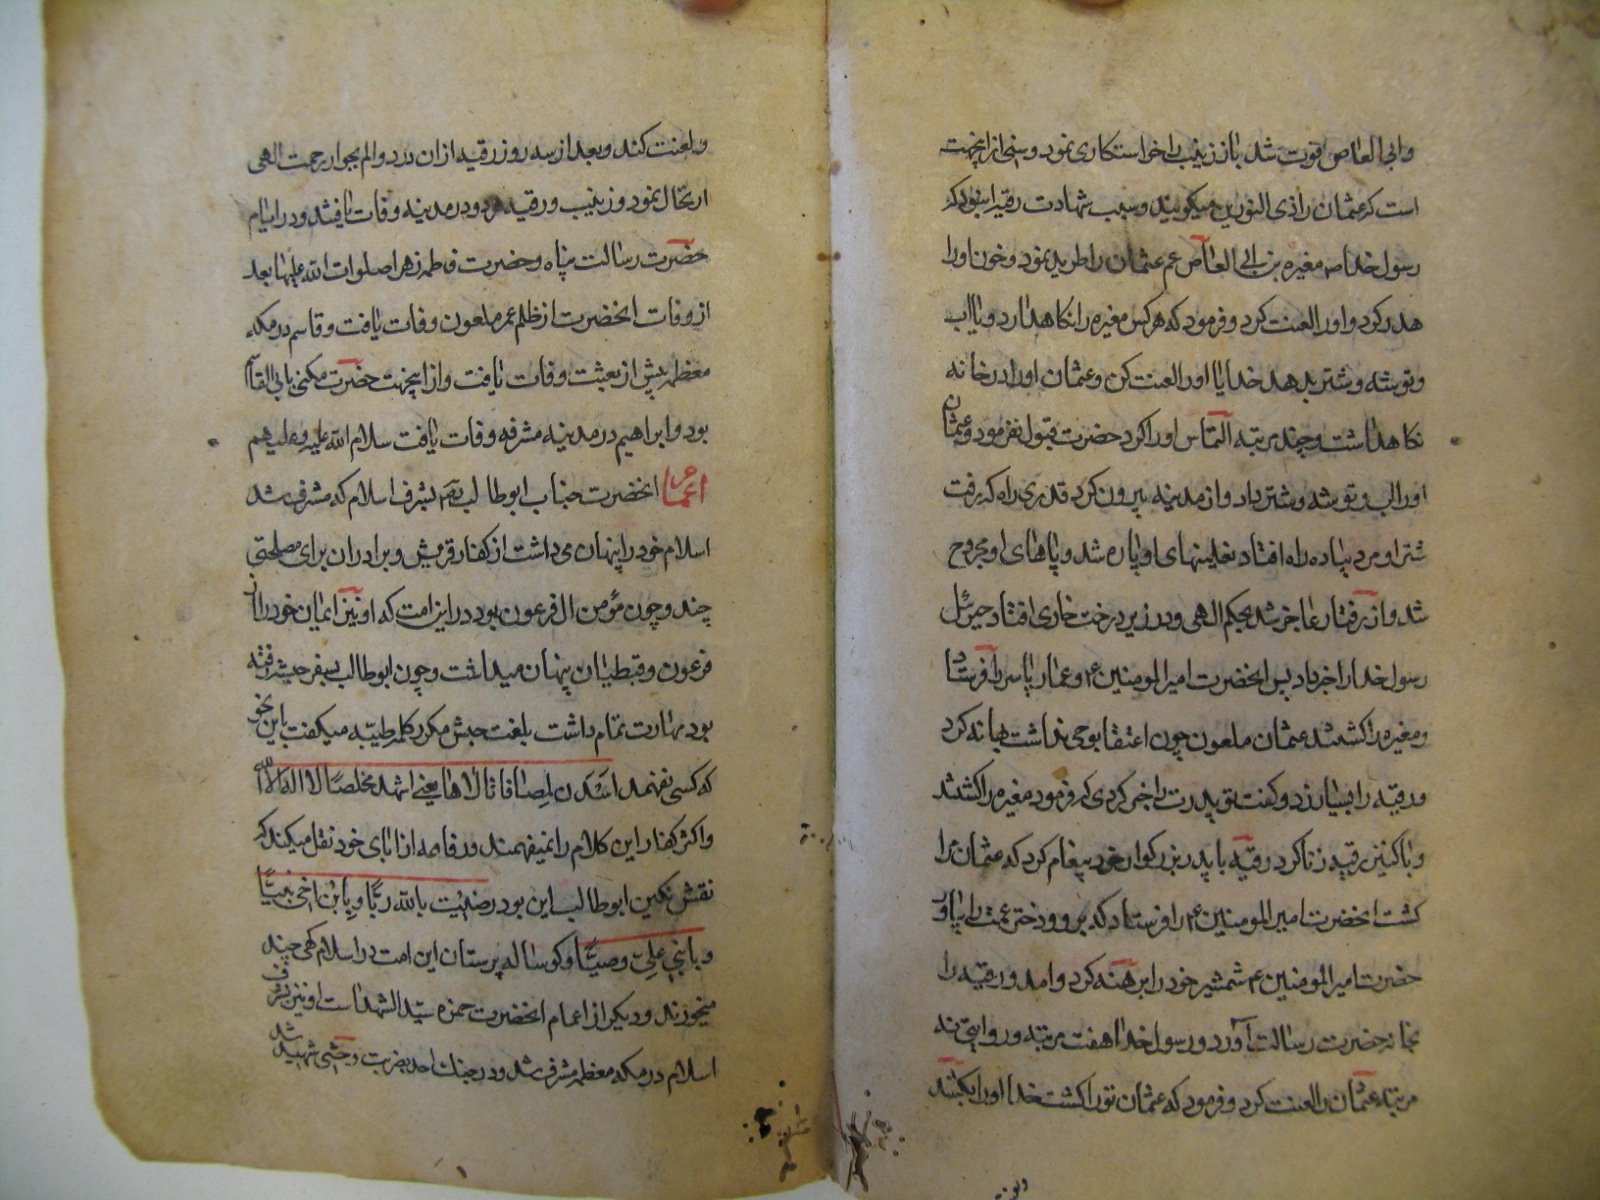 وابی العاص فوت شد باز زینب را خواستکاری نمود و سنی از اینجهت
است که عثمان را ذی النورین میکویند و سبب شهادت رقیه این بود که
رسول خدا ص مغیره بن ابی العاص عم عثمان را طرید نمود و خون او را
هدر کرد و او را لعنت کرد و فرمود که هر کس مغیره را نکاهدارد و یا اب
و توشه و شتر بدهد خدایا او را لعنت کن و عثمان او را در خانه
نکاهداشت و چند مرتبه التماس او را کرد حضرت قبول نفرمود و عثمان
او را اب و توشه و شتر داد و از مدینه بیرون کرد قدری راه که رفت
شتر او مرد پیاده راه افتاد نعلینهای او پاره شد و پاهای او مجروح
شد و از رفتار عاجز شد بحکم الهی و در زیر درخت خاری افتاد جبرئیل
رسول خدا را خبر داد پس انحضرت امیرالمومنین ع و عمار یاسر را فرستاد
و مغیره را کشتند عثمان ملعون چون اعتقاد بوحی نداشت بهانه کرد
و رقیه را بسیار زد و کفت تو پدرت را خبر کردی که فرمود مغیره را کشتند
و با کنیز رقیه زنا کرد رقیه با پدر بزرکوار خود پیغام کرد که عثمان مرا
کشت انحضرت امیرالمومنین ع را فرستاد که برو و دختر عمت را بیاور
حضرت امیرالمومنین ع شمشیر خود را برهنه کرد و امد و رقیه را
بخانه حضرت رسالت آورد و رسول خدا هفت مرتبه و روایتی نه
مرتبه عثمان را لعنت کرد و فرمود که عثمان تو را کشت خدا او را بکشد
و لعنت کند و بعد از سه روز رقیه از ان درد و الم بجوار رحمت الهی
ارتحال نمود و زینب و رقیه هر دو در مدینه وفات یافتند و در ایام
حضرت رسالت پناه و حضرت فاطمه زهرا صلوات الله علیها بعد
از وفات انحضرت از ظلم عمر ملعون وفات یافت و قاسم در مکه
معظمه پیش از بعثت وفات یافت و از اینجهت حضرت مکنی بابی القاسم
بود و ابراهیم در مدینه مشرفه وفات یافت سلام الله علیه و علیهم
اعمام انحضرت جناب ابوطالب بشرف اسلام که مشرف شد
اسلام خود را پنهان می داشت از کفار قریش و برادران برای مصلحتی
چند و چون مؤمن ال فرعون بود در این امت که او نیز ایمان خود را از
فرعون و قبطیان پنهان میداشت و چون ابوطالب بسفر حبشه رفته
بود مهارت تمام داشت بلغت حبش مکرر کلمه طیبه میکفت باین نحو
که کسی نفهمد اسدن لمصاقا قالاها یعنی اشهد مخلصا لا اله الا الله
و اکثر کفار این کلام را نمیفهمند و رفاعه از ابای خود نقل میکند که
نقش نکین ابوطالب این بود رضیت بالله ربًّا و بابن اخی نبیًّا
و بابنی علی وصیًّا و کوساله پرستان این امت در اسلام کهی چند
میخورند و دیکر از اعمام انحضرت حمزه سید الشهداست او نیز بشرف
اسلام در مکه معظمه مشرف شد و در جنك احد بضربت وحشی شهید شد